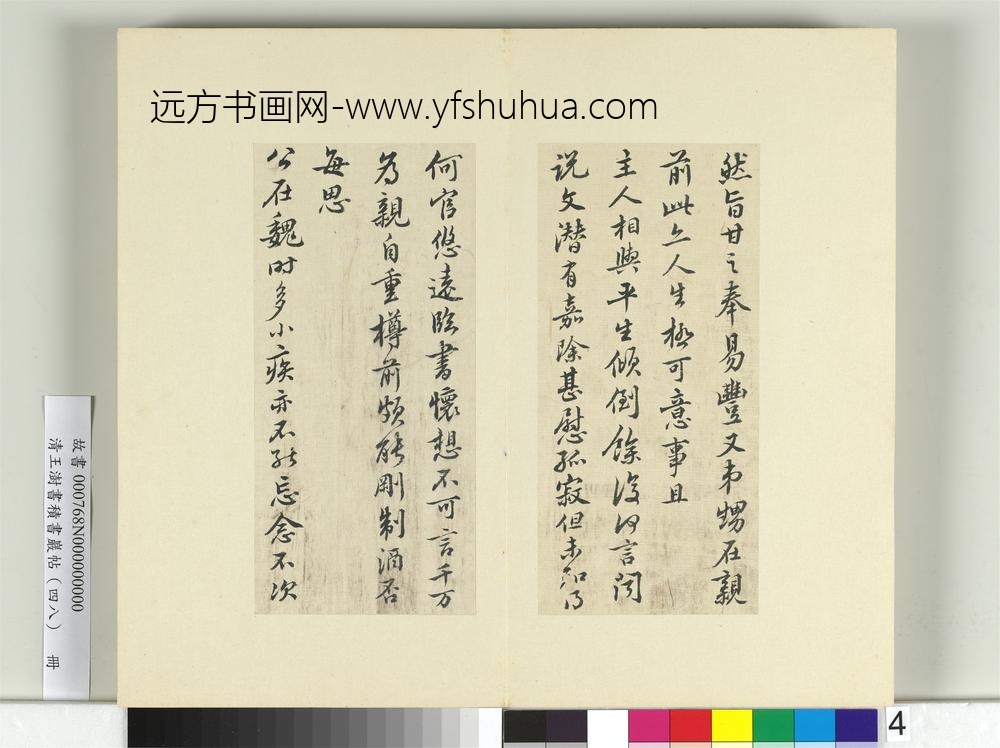 远方书画网-www.yfshuhua.com
然旨甘之奉易豐又弟甥在親
前此亦人生極可意事且
主人相與平生傾倒餘復何言閏
説文潛有嘉除甚慰孤寂但未知得
何官悠遠臨書懷想不可言千万
為親自重樽前頗能剛制酒否
每思
公在魏时多小疾亦不能忘念不次
故書 000768N000000000
清王澍書積書巖帖（四八） 冊
4